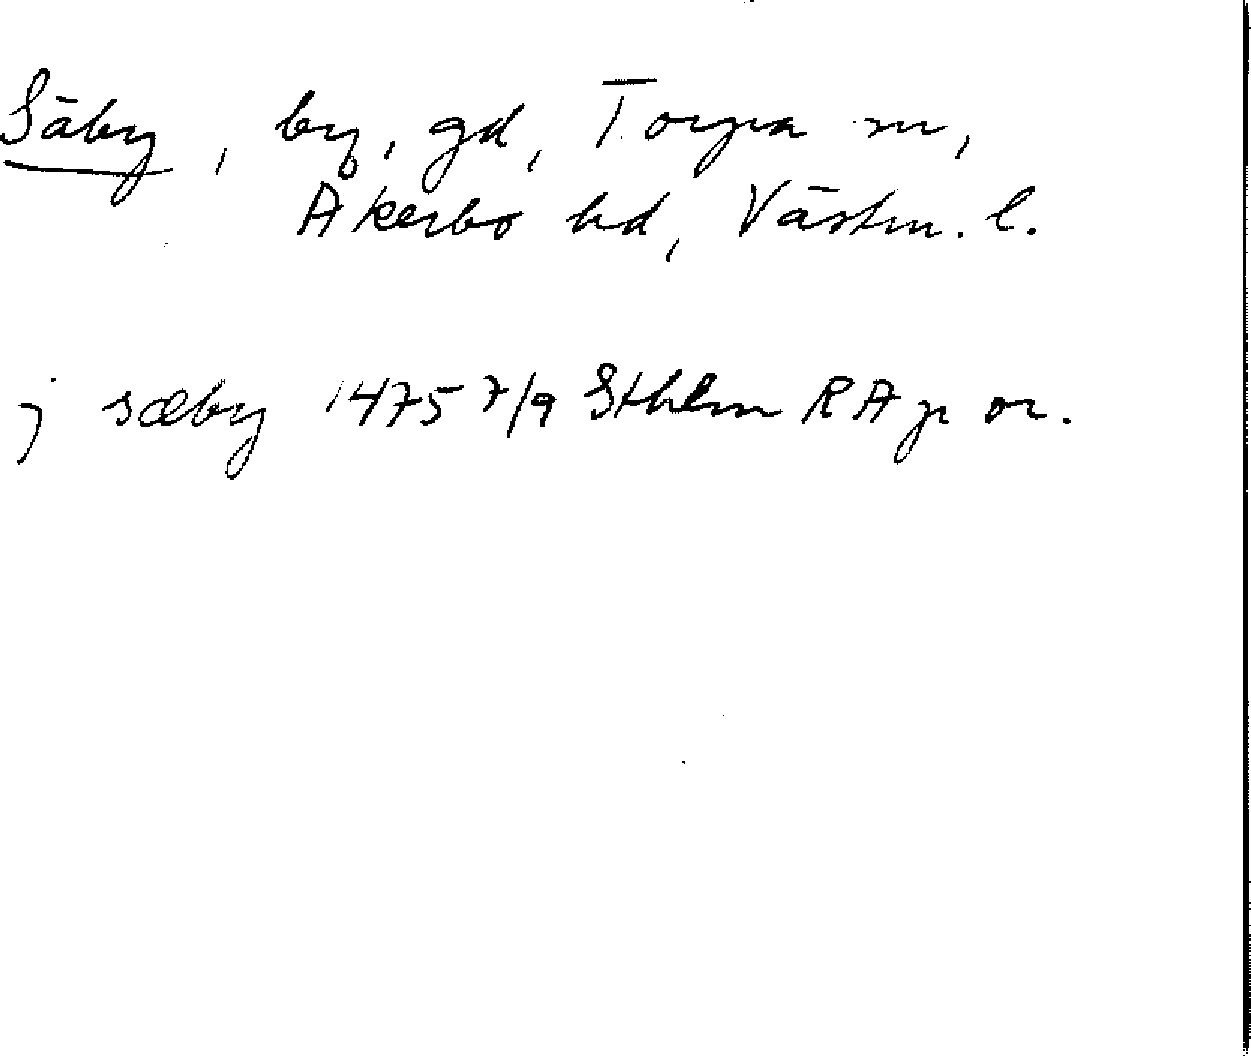 Säby, by, gd, Torpa sn,
Åkerbo hd, Västm. l.
j sæby 1475 7/9 Sthlm RAp or.